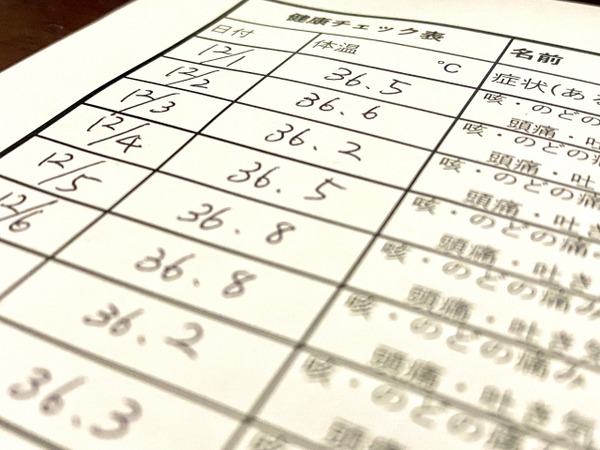 健康チェック表 名前
日付 体温 ℃ 症状(ある
12/1 36.5 咳・のどの
頭痛・吐
12/2 36.6 咳・のどの
頭痛・吐
12/3 36.2 咳・のどの痛
頭痛・吐き
12/4 36.5 咳・のどの痛
頭痛・吐き
12/5 36.8 咳・のどの痛み
頭痛・吐き
12/6 36.8 咳・のどの痛み
頭痛・吐き気
36.2 咳・のどの痛み
頭痛・吐き
36.3